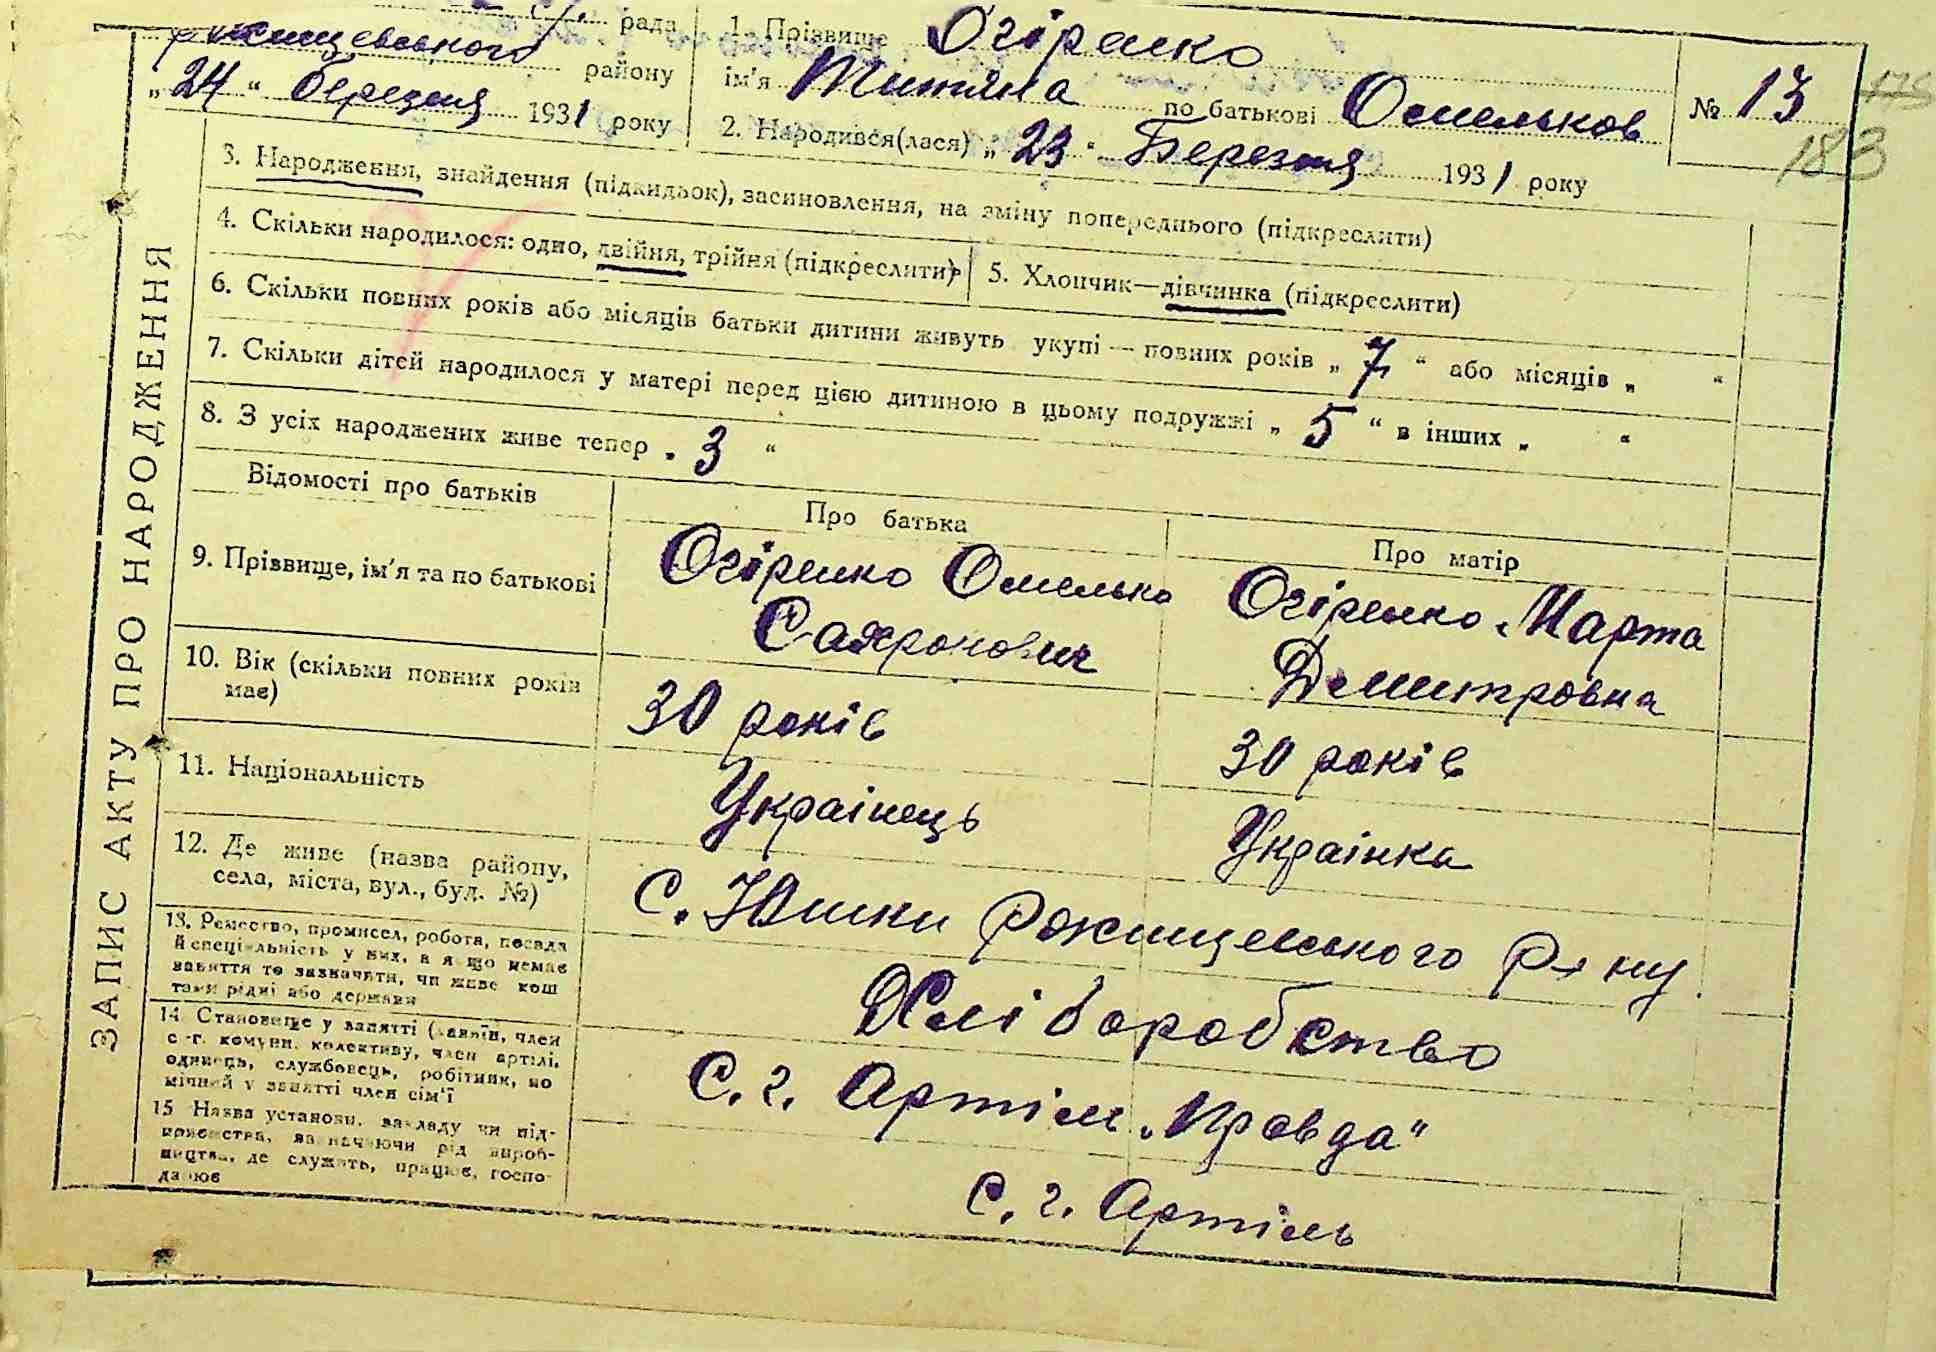 рада
1. Прізвище Огіренко
ржищевського району
ім'я Титяна по батькові Омельков
№ 13
175
183
„24“ березня 1931 року
2. Народився(лася) „23“ Березня 1931 року
3. Народження, знайдення (підкидьок), засиновлення, на зміну попереднього (підкреслити)
4. Скільки народилося: одно, двійня, трійня (підкреслити)
5. Хлопчик—дівчинка (підкреслити)
6. Скільки повних років або місяців батьки дитини живуть укупі — повних років „7“ або місяців „ “
7. Скільки дітей народилося у матері перед цією дитиною в цьому подружжі „5“ в інших „ “
8. З усіх народжених живе тепер „3“
Відомості про батьків
Про батька
Про матір
9. Прізвище, ім'я та по батькові
Огіренко Омелько
Сахронович
Огіренко Марта
Демитровна
10. Вік (скільки повних років
має)
30 років
30 років
11. Національність
Украінець
Украінка
12. Де живе (назва району,
села, міста, вул., буд. №)
с. Юшки Ржищевського р-ну
13. Ремество, промисел, робота, посада
й спеціяльність у них, а якщо немає
заняття то зазначити, чи живе кош
тами рідні або держави
Хліборобство
14. Становище у занятті (хазяїн, член
с.-г. комуни, колективу, член артілі,
одинець, службовець, робітник, по
мічний у занятті член сім'ї
С. г. Артіли „Правда“
15 Назва установи, закладу чи під-
приємства, зазначаючи рід вироб-
ництва, де служить, працює, госпо-
дарює
с. г. Артіль
ЗАПИС АКТУ ПРО НАРОДЖЕННЯ